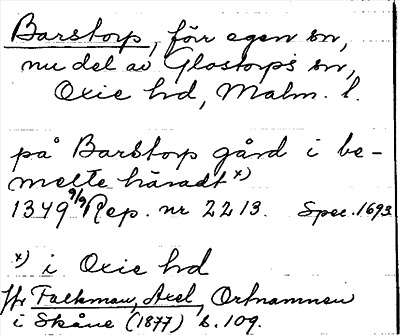 Barstorp, förr egen sn,
nu del av Glostorps sn,
Oxie hd, Malm. l.
på Barstorp gård i be-
melte häradt x)
1349 9/9 Rep. nr 2213. Spec. 1693.
x) i Oxie hd
Jfr Falkman, Axel, Ortnamnen
i Skåne (1877) s. 109.